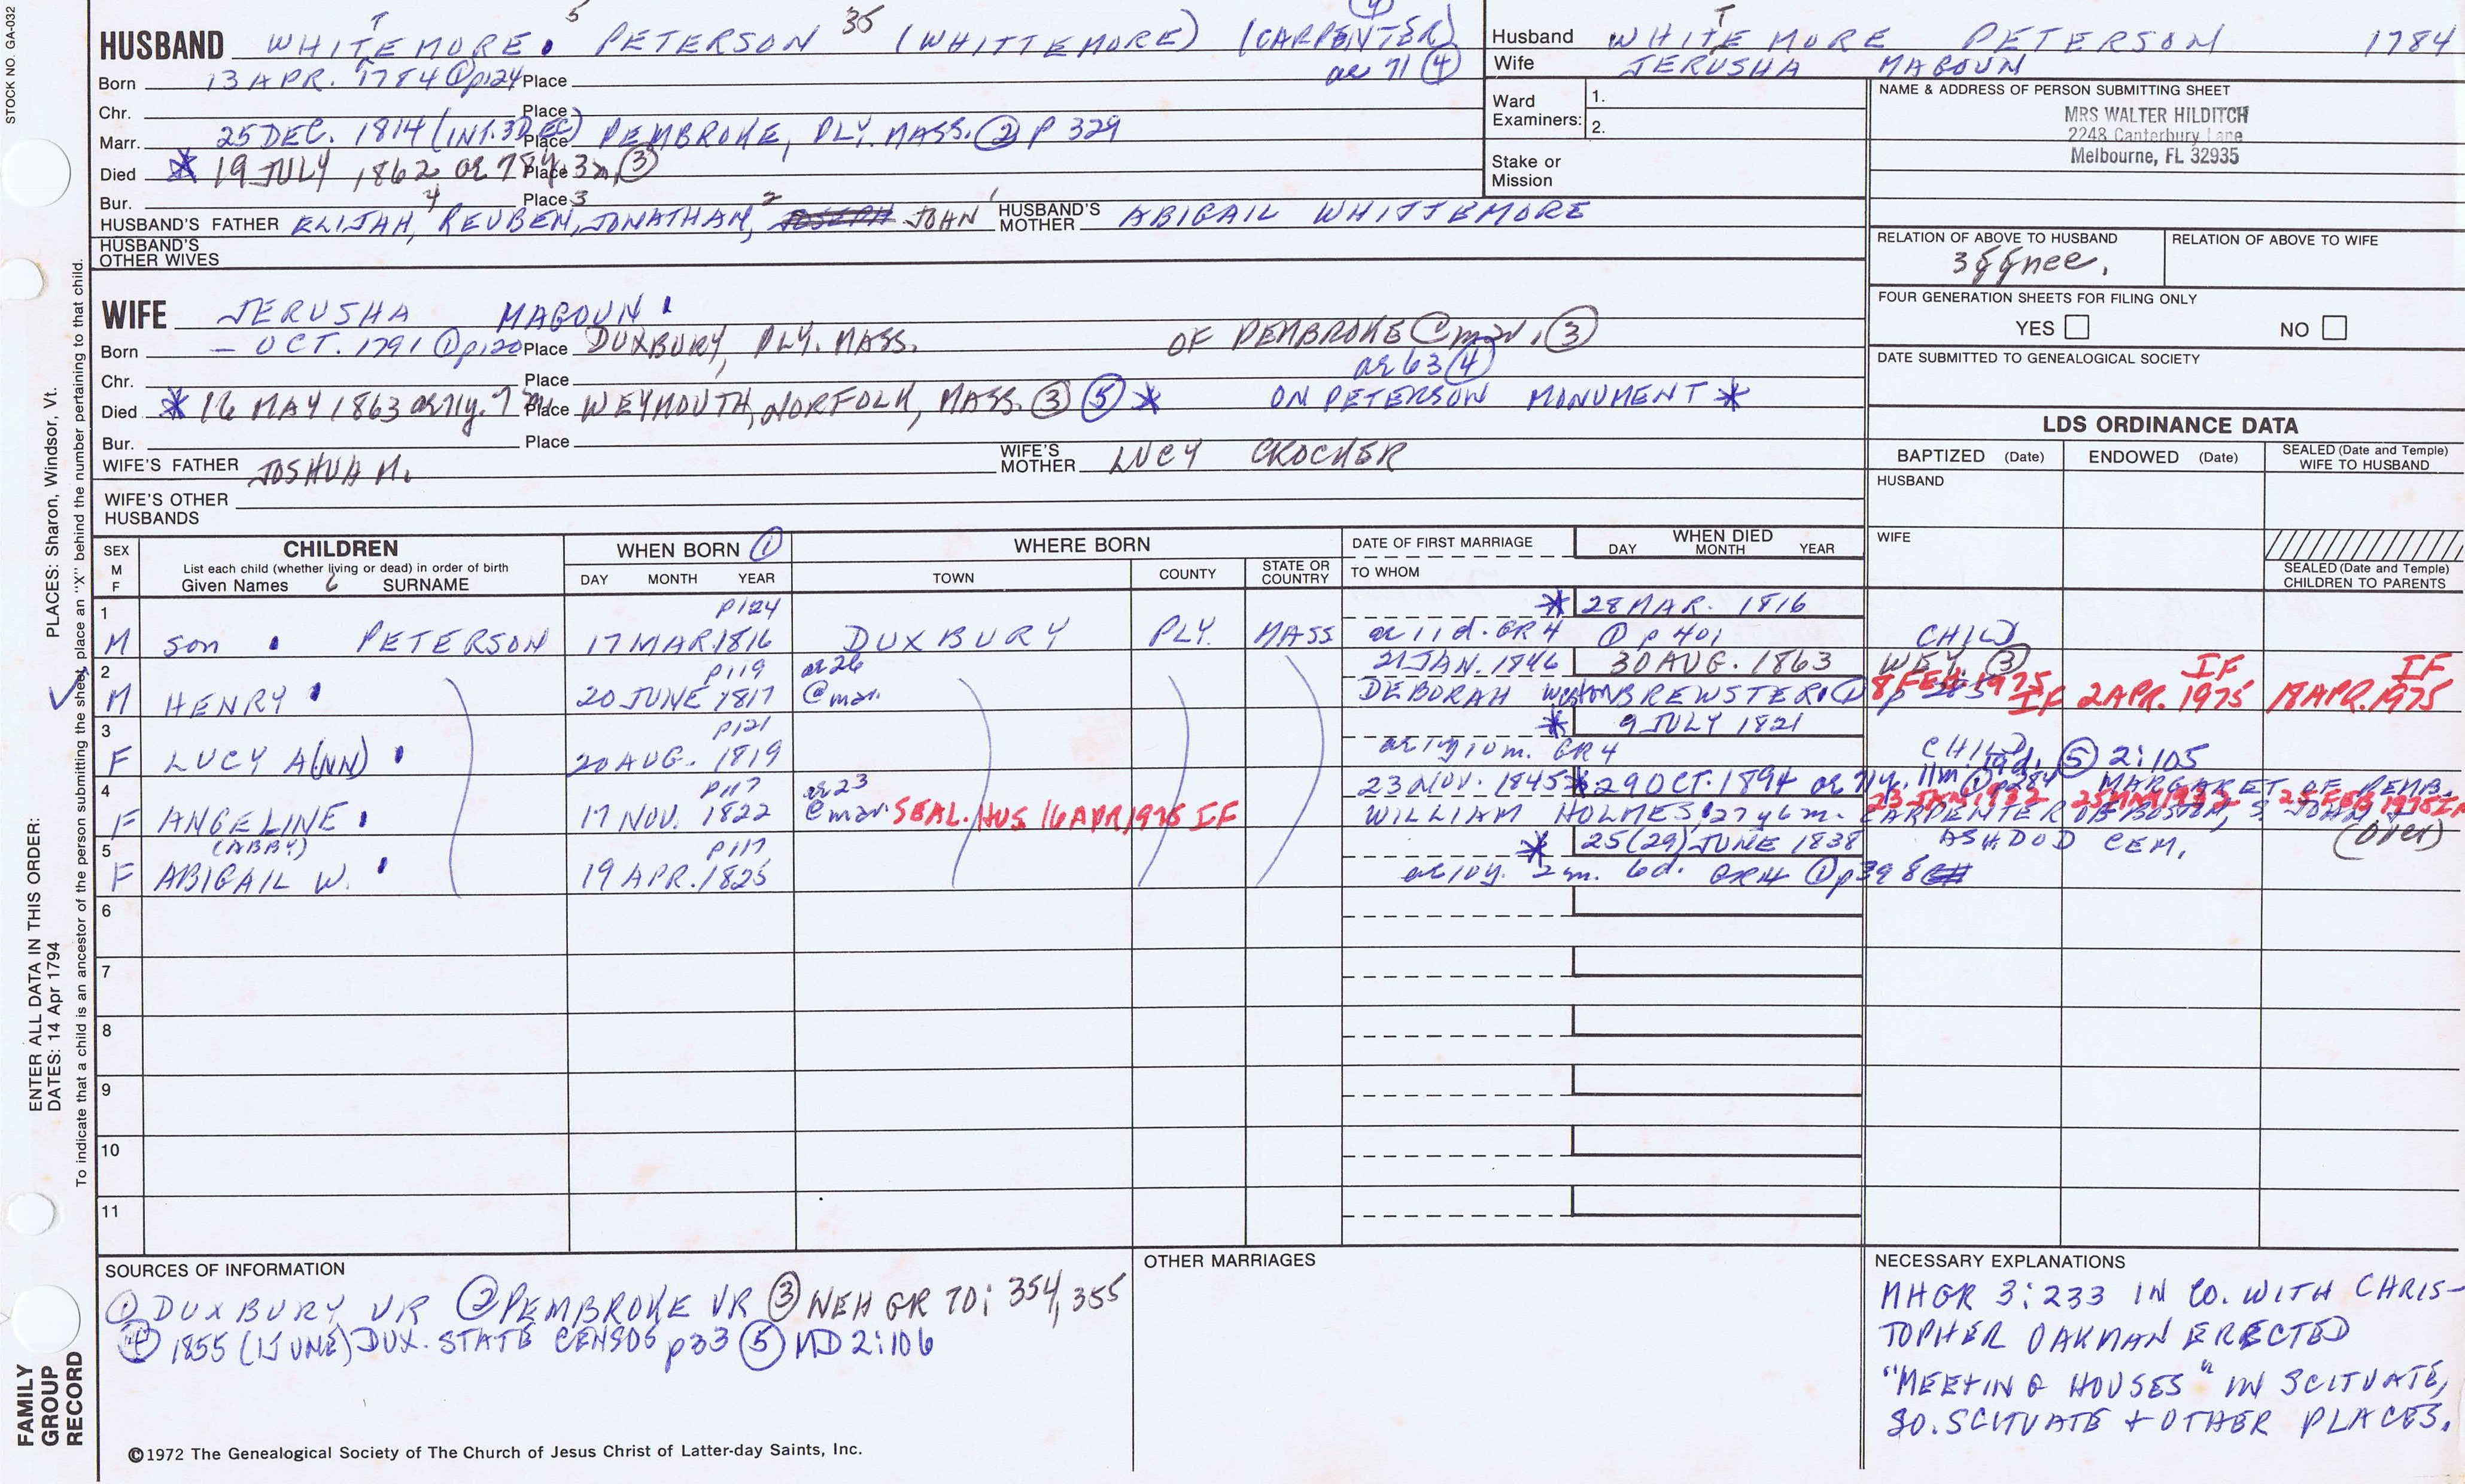 STOCK NO. GA-032
HUSBAND WHITEMORE PETERSON 35 (WHITTEMORE) (CARPENTER)
T 5
ae 71 (4)
Born 13 APR. 1784 ① p124 Place
Chr. Place
Marr. 25 DEC. 1814 (INT. 3 DEC) Place PEMBROKE, PLY. MASS. ② P 329
Died * 19 JULY 1862 ae 78y. 3m. ③ Place
Bur. Place
HUSBAND'S FATHER ELIJAH, 4 REUBEN, 3 JONATHAN, 2 JOSEPH JOHN 1 HUSBAND'S MOTHER ABIGAIL WHITTEMORE
HUSBAND'S OTHER WIVES
Husband WHITEMORE PETERSON 1784
T
Wife JERUSHA MAGOUN
Ward Examiners: 1.
2.
Stake or Mission
NAME & ADDRESS OF PERSON SUBMITTING SHEET
MRS WALTER HILDITCH
2248 Canterbury Lane
Melbourne, FL 32935
RELATION OF ABOVE TO HUSBAND
RELATION OF ABOVE TO WIFE
FOUR GENERATION SHEETS FOR FILING ONLY
YES NO
DATE SUBMITTED TO GENEALOGICAL SOCIETY
WIFE JERUSHA MAGOUN
Born – OCT. 1791 ① p120 Place DUXBURY, PLY. MASS. OF PEMBROKE @ mar. ③
ae 63 ④
Chr. Place
Died * 16 MAY 1863 ae 71y. 7m. Place WEYMOUTH, NORFOLK, MASS. ③ ⑤ * ON PETERSON MONUMENT *
Bur. Place
WIFE'S FATHER JOSHUA M. WIFE'S MOTHER LUCY CROCKER
WIFE'S OTHER HUSBANDS
LDS ORDINANCE DATA
BAPTIZED (Date) ENDOWED (Date) SEALED (Date and Temple) WIFE TO HUSBAND
HUSBAND
WIFE
SEALED (Date and Temple) CHILDREN TO PARENTS
SEX M F
CHILDREN
List each child (whether living or dead) in order of birth
Given Names 6 SURNAME
WHEN BORN ①
DAY MONTH YEAR
WHERE BORN
TOWN COUNTY STATE OR COUNTRY
DATE OF FIRST MARRIAGE
TO WHOM
WHEN DIED
DAY MONTH YEAR
1 P124 * 28 MAR. 1816
M son PETERSON 17 MAR. 1816 DUXBURY PLY. MASS ae 11d. GR4 ① p 401 CHILD
2 P119 ae 26 21 JAN. 1846 30 AUG. 1863 WEY. ③ IF IF
M HENRY 20 JUNE 1817 @ mar. DEBORAH Weston BREWSTER ① 8 FEB. 1975 IF 2 APR. 1975 18 APR. 1975
3 P121 * 9 JULY 1821
F LUCY A(NN) 20 AUG. 1819 ae 1y 10m. GR4 CHILD ⑤ 2:105
4 P117 ae 23 23 NOV. 1845 * 29 OCT. 1894 ae 71y. 11m. ① p284 MARGARET OF PEMB.
F ANGELINE 17 NOV. 1822 @ mar. SEAL. HUS 16 APR 1975 IF WILLIAM HOLMES, 27y 6m. CARPENTER OF BOSTON, S. JOHN &
(OVER)
5 (ABBY) P117 * 25(29) JUNE 1838 ASHDOD CEM.
F ABIGAIL W. 19 APR. 1825 ae 10y. 2m. 6d. GR4 ① p398
6
7
8
9
10
11
SOURCES OF INFORMATION
① DUXBURY VR ② PEMBROKE VR ③ NEH GR 70: 354, 355
④ 1855 (1 JUNE) DUX. STATE CENSUS p33 ⑤ MD 2:106
OTHER MARRIAGES
NECESSARY EXPLANATIONS
MHGR 3:233 IN CO. WITH CHRIS-
TOPHER OAKMAN ERECTED
"MEETING HOUSES" IN SCITUATE,
SO. SCITUATE + OTHER PLACES.
©1972 The Genealogical Society of The Church of Jesus Christ of Latter-day Saints, Inc.
FAMILY GROUP RECORD
ENTER ALL DATA IN THIS ORDER:
DATES: 14 Apr 1794
PLACES: Sharon, Windsor, Vt.
To indicate that a child is an ancestor of the person submitting the sheet, place an "X" behind the number pertaining to that child.